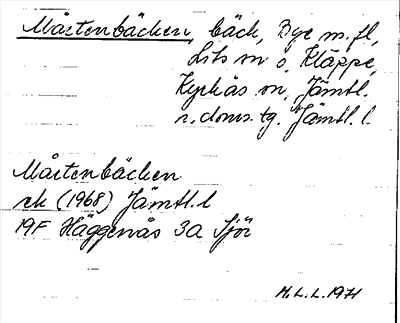 Mårtenbäcken, bäck, Bye m.fl,
Lits sn o. Kläppe,
Kyrkås sn, Jämtl.
n. doms. tg. Jämtl. l.
Mårtenbäcken
rk (1968) Jämtl. l
19F Häggenås 3a Sjör
M.L.L. 1971